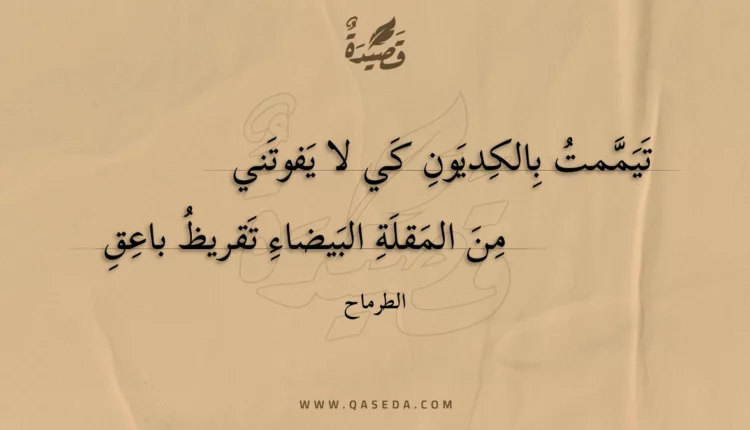 قَصِيدَةٌ
تَيَمَّمتُ بِالكِديَونِ كَي لا يَفوتَني
مِنَ المَقلَةِ البَيضاءِ تَقريظُ باعِقِ
الطرماح
WWW.QASEDA.COM